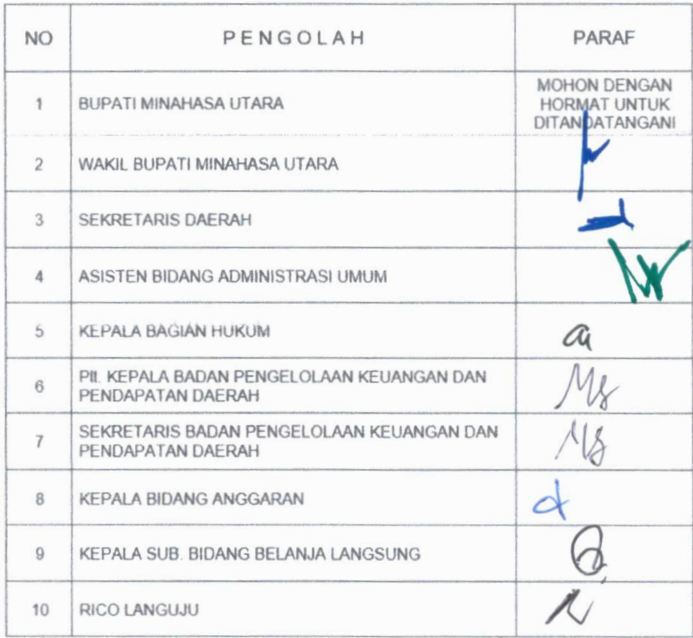 NO PENGOLAH PARAF
1 BUPATI MINAHASA UTARA MOHON DENGAN
HORMAT UNTUK
DITANDATANGANI
2 WAKIL BUPATI MINAHASA UTARA
3 SEKRETARIS DAERAH
4 ASISTEN BIDANG ADMINISTRASI UMUM
5 KEPALA BAGIAN HUKUM
6 Plt. KEPALA BADAN PENGELOLAAN KEUANGAN DAN
PENDAPATAN DAERAH
7 SEKRETARIS BADAN PENGELOLAAN KEUANGAN DAN
PENDAPATAN DAERAH
8 KEPALA BIDANG ANGGARAN
9 KEPALA SUB. BIDANG BELANJA LANGSUNG
10 RICO LANGUJU